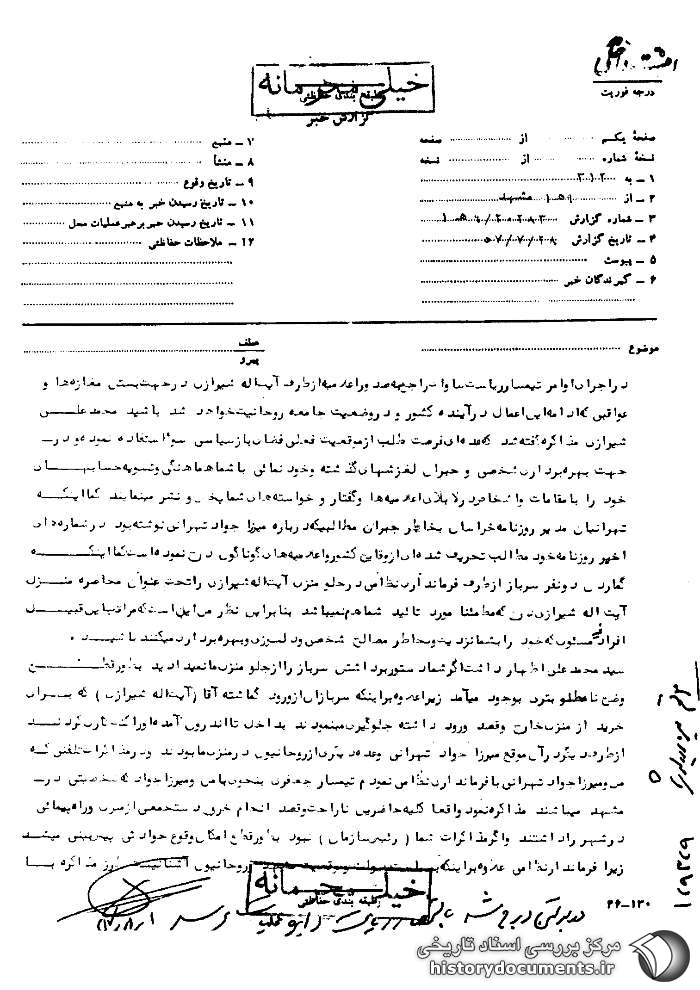 درجه فوریت
خیلی محرمانه
طبقه بندی حفاظتی
گزارش خبر
صفحهٔ یکم از صفحه
نسخهٔ شماره از نسخه
۱ – به ۳۱۲
۲ – از ۱۵۹ مشهد
۳ – شماره گزارش
۴ – تاریخ گزارش ۵۷/۷/۲۸
۵ – پیوست
۶ – گیرندگان خبر
۷ – منبع
۸ – منشأ
۹ – تاریخ وقوع
۱۰ – تاریخ رسیدن خبر به منبع
۱۱ – تاریخ رسیدن خبر برهبر عملیات محل
۱۲ – ملاحظات حفاظتی
موضوع
عطف
پیرو
در اجرای اوامر تیمسار ریاست ساواک راجع به صدور اعلامیه از طرف آیت اله شیرازی در جهت بستن مغازه ها و
عواقبی که ادامه این اعمال در آینده کشور و در وضعیت جامعه روحانیت خواهد داشت باشید محمدعلی
شیرازی مذاکره گفته شد که عده ای فرصت طلب از موقعیت فعلی فضای باز سیاسی سوء استفاده نموده و در
جهت بهره برداری شخصی و جبران لغزشهای گذشته و خودنمائی با شما هماهنگی و تسویه حسابهای
خود را با مقامات و اشخاص در لابلای اعلامیه ها و گفتار و خواسته های شما پخش و نشر مینمایند کما اینکه
تهرانیان مدیر روزنامه خراسان بخاطر جبران مطالبیکه درباره میرزا جواد تهرانی نوشته بود در شماره های
اخیر روزنامه خود مطالب تحریف شده ای از وقایع کشور و اعلامیه های گوناگون درج نموده است کما اینکه
گماردن دو نفر سرباز از طرف فرمانداری نظامی در جلو منزل آیت اله شیرازی را تحت عنوان محاصره منزل
آیت اله شیرازی درج که مطمئنا مورد تائید شما هم نمیباشد بنابراین نظر من این است که مراقب این قبیل
افراد مسئول که خود را بشما نزدیک و بخاطر مصالح شخصی و دلسوزی و بهره برداری میکنند باشید .
سید محمدعلی اظهار داشت اگر شما دستور برداشتن سرباز را از جلو منزل ما نمیدادید بطور قطع
وضع نامطلوبتری بوجود میآمد زیرا علاوه بر اینکه سربازان از ورود گماشته آقا (آیت اله شیرازی) که برای
خرید از منزل خارج و قصد ورود داشته جلوگیری مینمودند بداخل تا اندرون آمده او را کتک کاری کردند
از طرف دیگر در آن موقع میرزا جواد تهرانی وعده دیگری از روحانیون در منزل ما بودند و در مذاکرات تلفنی که
من و میرزا جواد تهرانی با فرمانداری نظامی نمودیم تیمسار جعفری بنحوی با من و میرزا جواد که شخصیتی در
مشهد میباشند مذاکره نمود واقعا کلیه حاضرین ناراحت و قصد انجام خروج دستجمعی از منزل و راه پیمائی
در شهر را داشتند و اگر مذاکرات شما (رئیس سازمان) نبود بطور قطع امکان وقوع حوادثی پیش بینی میشد
زیرا فرمانداری نظامی علاوه بر اینکه روحانیون آشنا نیست طرز مذاکره با
خیلی محرمانه
طبقه بندی حفاظتی
۲۶–۱۳۰
مرکز بررسی اسناد تاریخی
historydocuments.ir